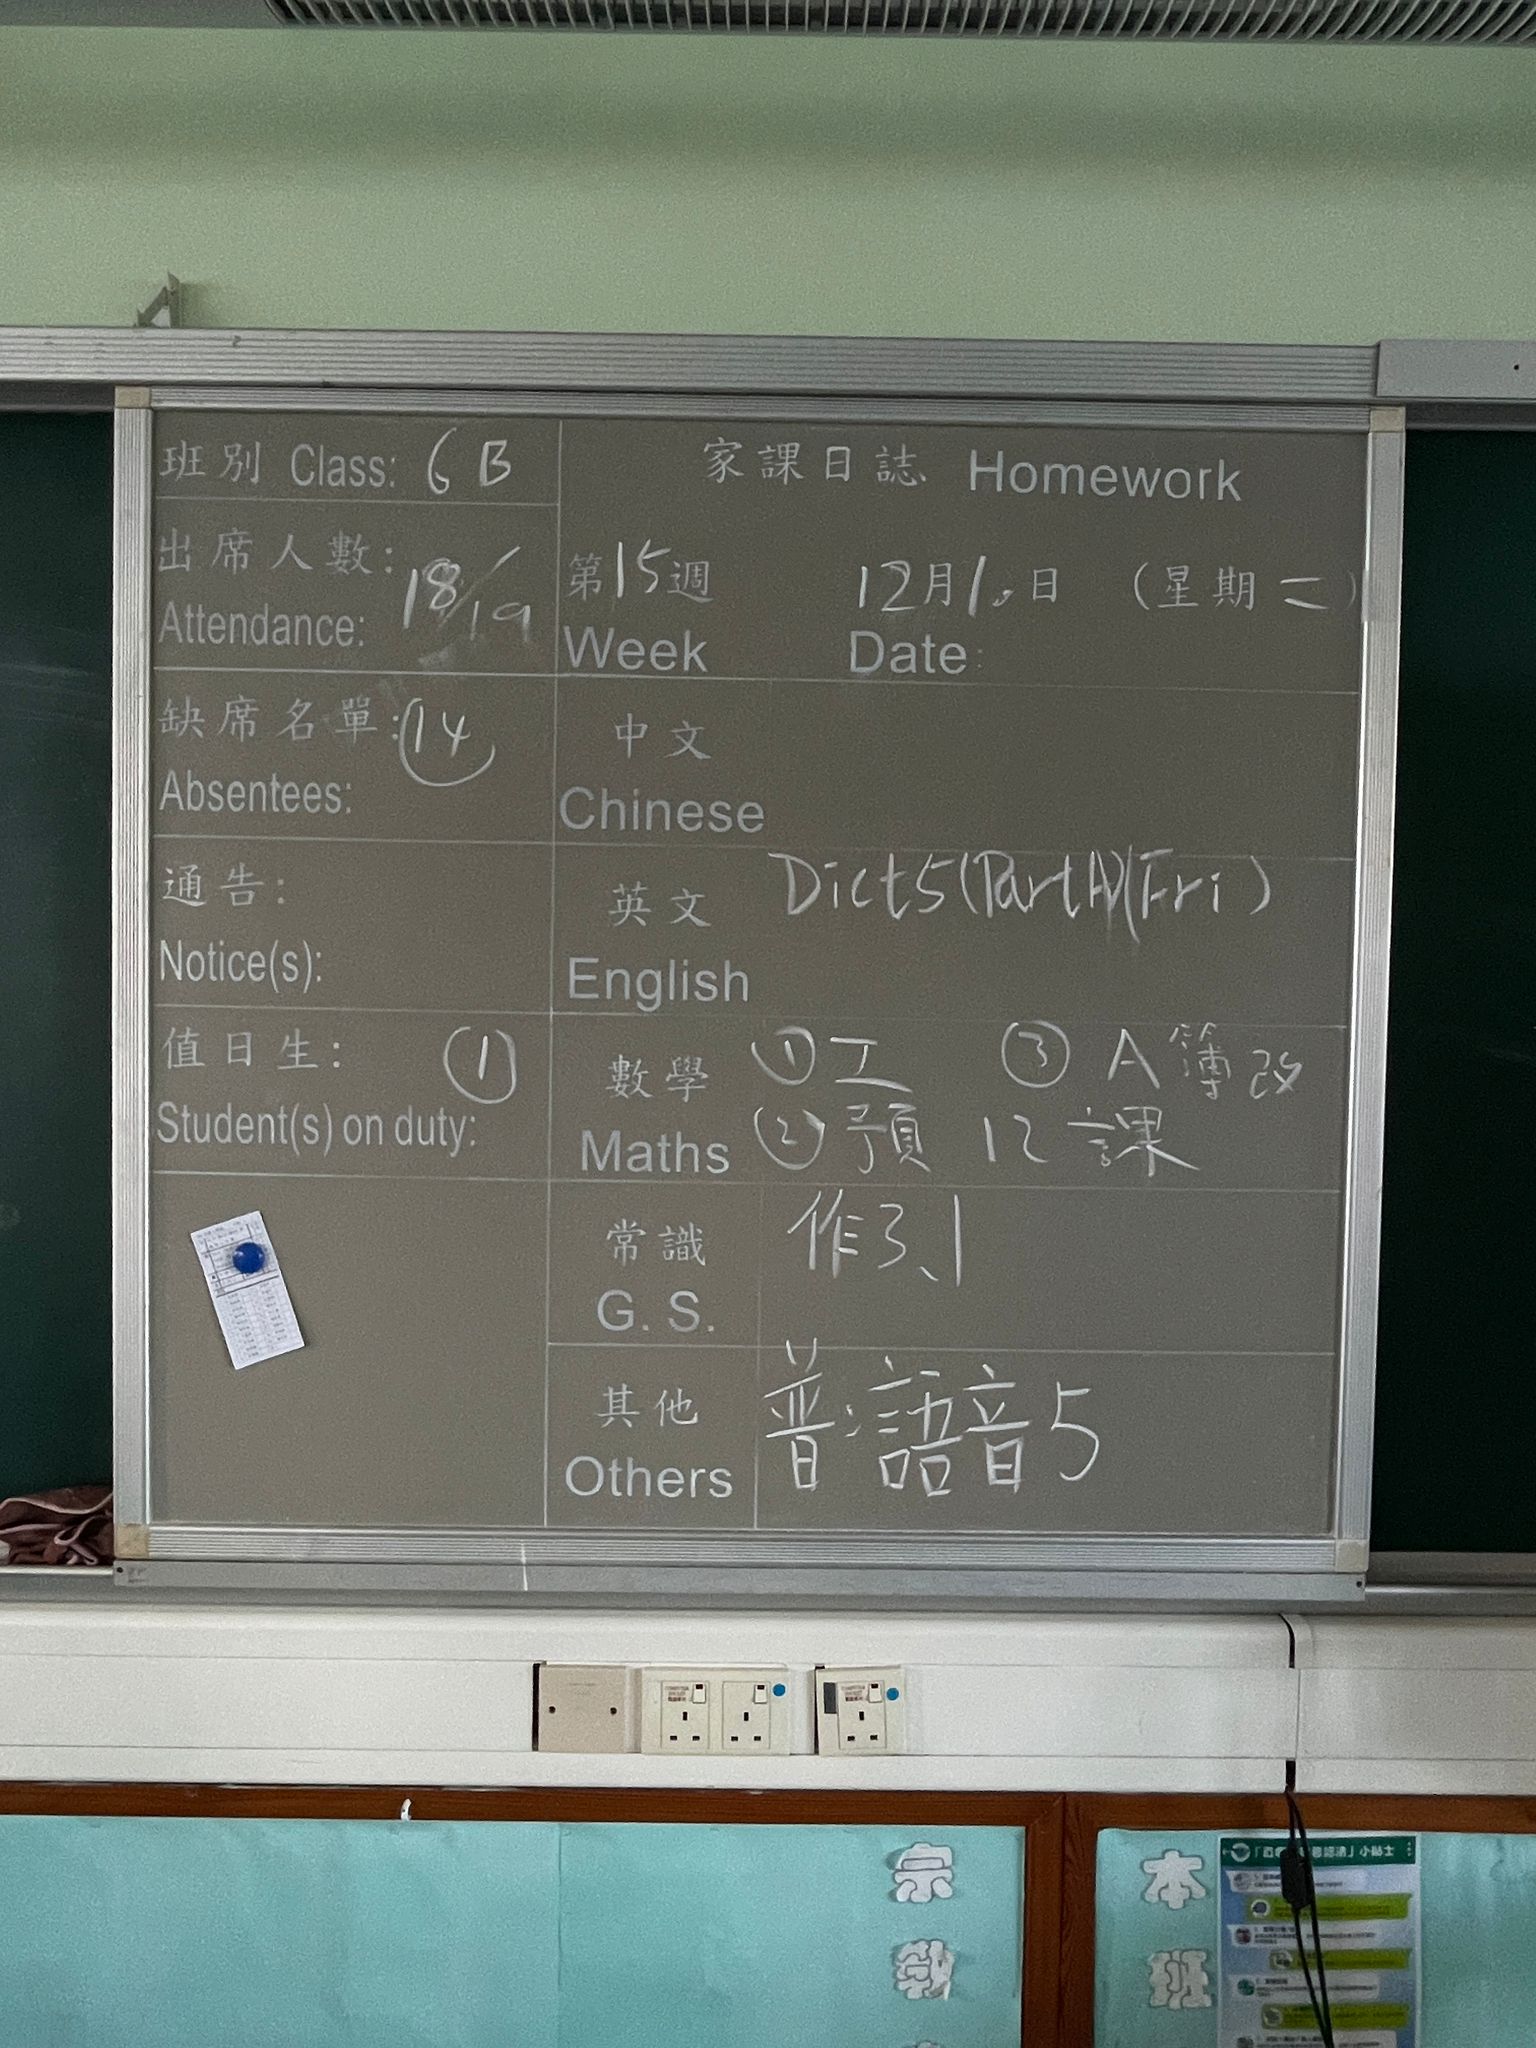 班別 Class: 6B
出席人數: 18/19
Attendance:
缺席名單: 14
Absentees:
通告:
Notice(s):
值日生: ①
Student(s) on duty:
家課日誌 Homework
第15週 12月10日 (星期二)
Week Date:
中文
Chinese
英文 Dict5(PartA)(Fri)
English
數學 ①工 ③A簿改
Maths ②預12課
常識 作3、1
G. S.
其他 普:語音5
Others
宗
教
本
班
小貼士